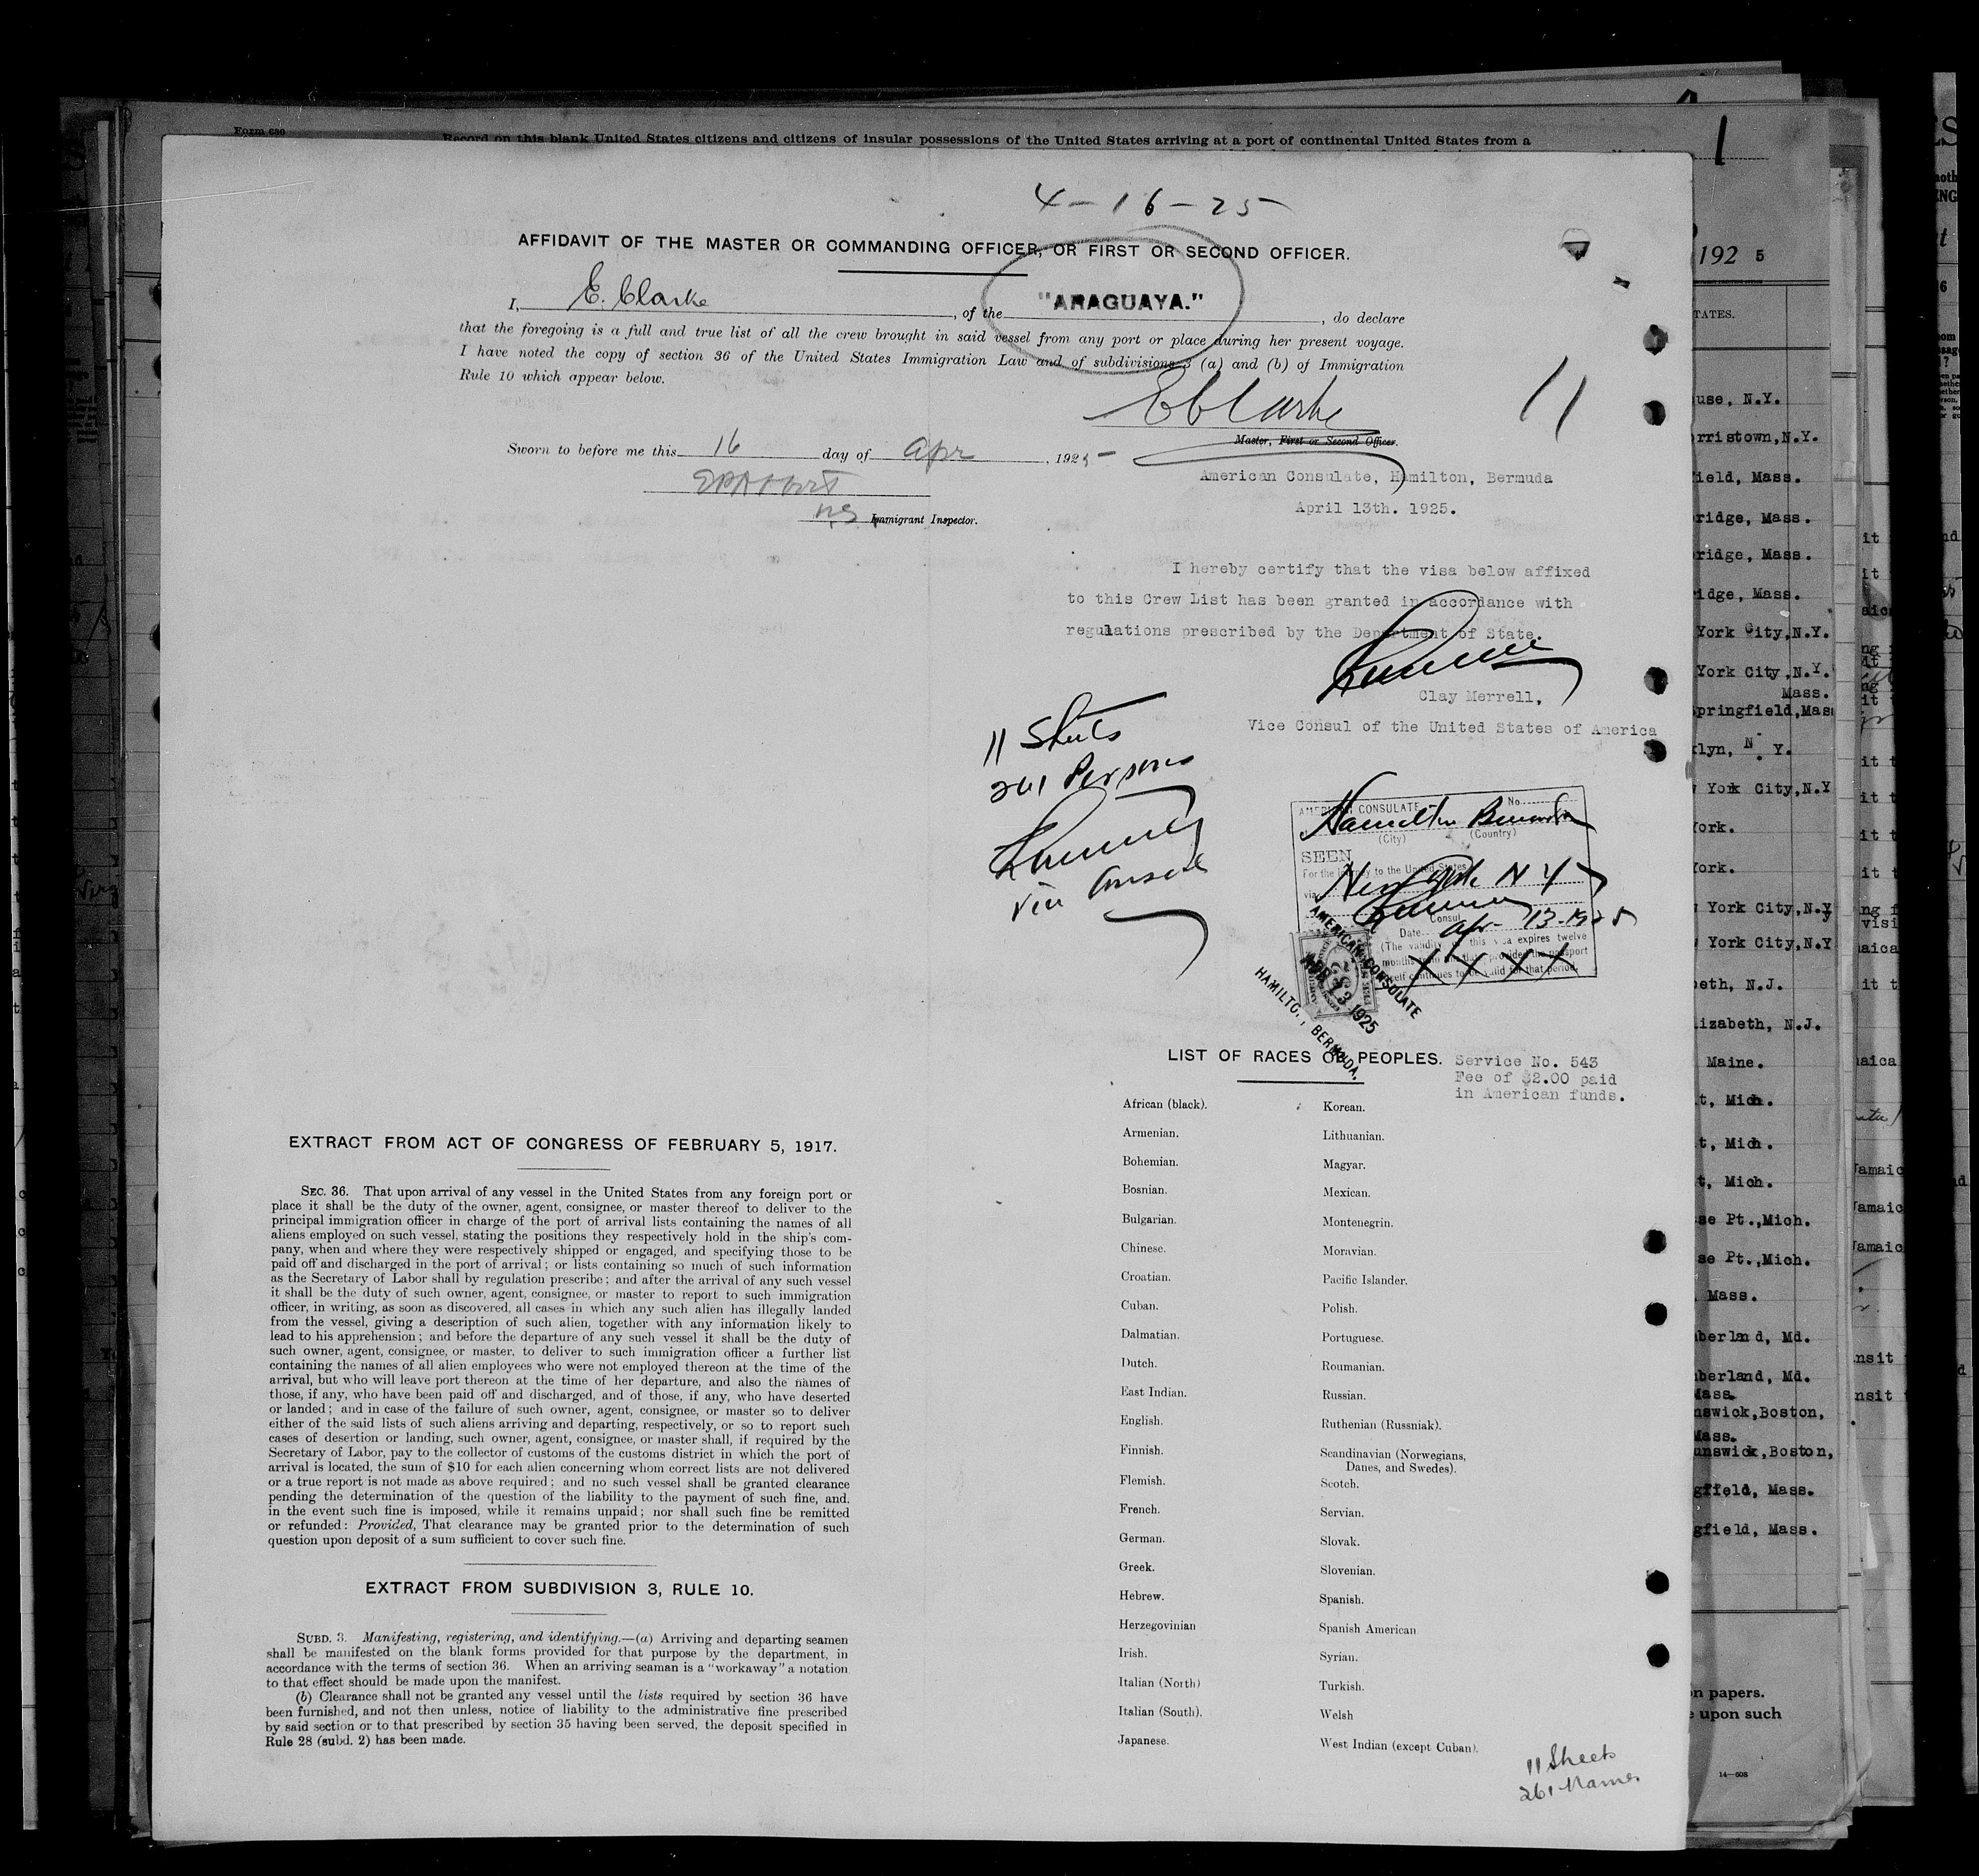 Form 680
Record on this blank United States citizens and citizens of insular possessions of the United States arriving at a port of continental United States from a
1
4-16-25
AFFIDAVIT OF THE MASTER OR COMMANDING OFFICER, OR FIRST OR SECOND OFFICER.
I, E. Clarke, of the "ARAGUAYA.", do declare
that the foregoing is a full and true list of all the crew brought in said vessel from any port or place during her present voyage.
I have noted the copy of section 36 of the United States Immigration Law and of subdivisions 3 (a) and (b) of Immigration
Rule 10 which appear below.
E Clarke
11
Master, First or Second Officer.
Sworn to before me this 16 day of Apr, 1925
Immigrant Inspector.
American Consulate, Hamilton, Bermuda
April 13th. 1925.
I hereby certify that the visa below affixed
to this Crew List has been granted in accordance with
regulations prescribed by the Department of State.
Clay Merrell,
Vice Consul of the United States of America
11 Sheets
261 Persons
Vice Consul
AMERICAN CONSULATE No.
Hamilton Bermuda
(City) (Country)
SEEN
For the journey to the United States
via New York N Y
Consul
Date Apr-13-1925
(The validity of this visa expires twelve
months from this date, provided the passport
itself continues to be valid for that period.
XXXX
AMERICAN CONSULATE
APR 13 1925
HAMILTO., BERMUDA.
LIST OF RACES OR PEOPLES.
Service No. 543
Fee of $2.00 paid
in American funds.
African (black).
Armenian.
Bohemian.
Bosnian.
Bulgarian.
Chinese.
Croatian.
Cuban.
Dalmatian.
Dutch.
East Indian.
English.
Finnish.
Flemish.
French.
German.
Greek.
Hebrew.
Herzegovinian
Irish.
Italian (North)
Italian (South).
Japanese.
Korean.
Lithuanian.
Magyar.
Mexican.
Montenegrin.
Moravian.
Pacific Islander.
Polish.
Portuguese.
Roumanian.
Russian.
Ruthenian (Russniak).
Scandinavian (Norwegians,
Danes, and Swedes).
Scotch.
Servian.
Slovak.
Slovenian.
Spanish.
Spanish American
Syrian.
Turkish.
Welsh
West Indian (except Cuban).
11 Sheets
261 Names
EXTRACT FROM ACT OF CONGRESS OF FEBRUARY 5, 1917.
SEC. 36. That upon arrival of any vessel in the United States from any foreign port or
place it shall be the duty of the owner, agent, consignee, or master thereof to deliver to the
principal immigration officer in charge of the port of arrival lists containing the names of all
aliens employed on such vessel, stating the positions they respectively hold in the ship's com-
pany, when and where they were respectively shipped or engaged, and specifying those to be
paid off and discharged in the port of arrival; or lists containing so much of such information
as the Secretary of Labor shall by regulation prescribe; and after the arrival of any such vessel
it shall be the duty of such owner, agent, consignee, or master to report to such immigration
officer, in writing, as soon as discovered, all cases in which any such alien has illegally landed
from the vessel, giving a description of such alien, together with any information likely to
lead to his apprehension; and before the departure of any such vessel it shall be the duty of
such owner, agent, consignee, or master, to deliver to such immigration officer a further list
containing the names of all alien employees who were not employed thereon at the time of the
arrival, but who will leave port thereon at the time of her departure, and also the names of
those, if any, who have been paid off and discharged, and of those, if any, who have deserted
or landed; and in case of the failure of such owner, agent, consignee, or master so to deliver
either of the said lists of such aliens arriving and departing, respectively, or so to report such
cases of desertion or landing, such owner, agent, consignee, or master shall, if required by the
Secretary of Labor, pay to the collector of customs of the customs district in which the port of
arrival is located, the sum of $10 for each alien concerning whom correct lists are not delivered
or a true report is not made as above required; and no such vessel shall be granted clearance
pending the determination of the question of the liability to the payment of such fine, and.
in the event such fine is imposed, while it remains unpaid; nor shall such fine be remitted
or refunded: Provided, That clearance may be granted prior to the determination of such
question upon deposit of a sum sufficient to cover such fine.
EXTRACT FROM SUBDIVISION 3, RULE 10.
SUBD. 3. Manifesting, registering, and identifying.—(a) Arriving and departing seamen
shall be manifested on the blank forms provided for that purpose by the department, in
accordance with the terms of section 36. When an arriving seaman is a "workaway" a notation
to that effect should be made upon the manifest.
(b) Clearance shall not be granted any vessel until the lists required by section 36 have
been furnished, and not then unless, notice of liability to the administrative fine prescribed
by said section or to that prescribed by section 35 having been served, the deposit specified in
Rule 28 (subd. 2) has been made.
192 5
TATES.
use, N.Y.
rristown, N.Y.
ield, Mass.
ridge, Mass.
ridge, Mass.
idge, Mass.
York City, N.Y.
York City, N.Y.
Mass.
pringfield, Mass
klyn, N. Y.
York City, N.Y
ork.
ork.
York City, N.Y
York City, N.Y
beth, N.J.
lizabeth, N.J.
Maine.
t, Mich.
t, Mich.
t, Mich.
se Pt., Mich.
se Pt., Mich.
Mass.
berland, Md.
berland, Md.
Mass.
nswick, Boston,
Mass.
unswick, Boston,
gffeld, Mass.
gfield, Mass.
n papers.
upon such
14—608